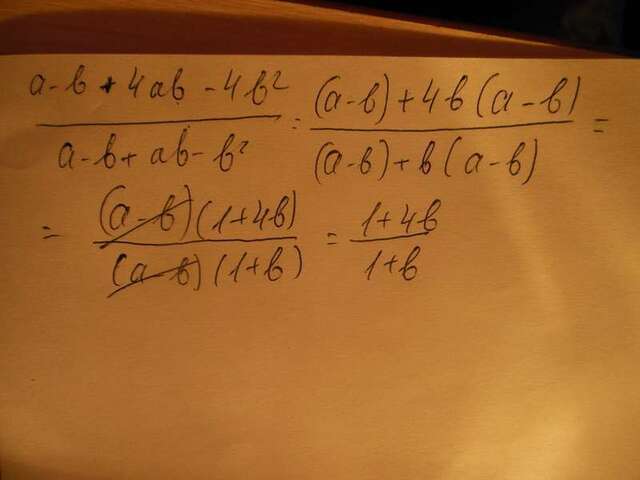 a-b+4ab-4b²/a-b+ab-b² = (a-b)+4b(a-b)/(a-b)+b(a-b) =
= (a-b)(1+4b)/(a-b)(1+b) = 1+4b/1+b